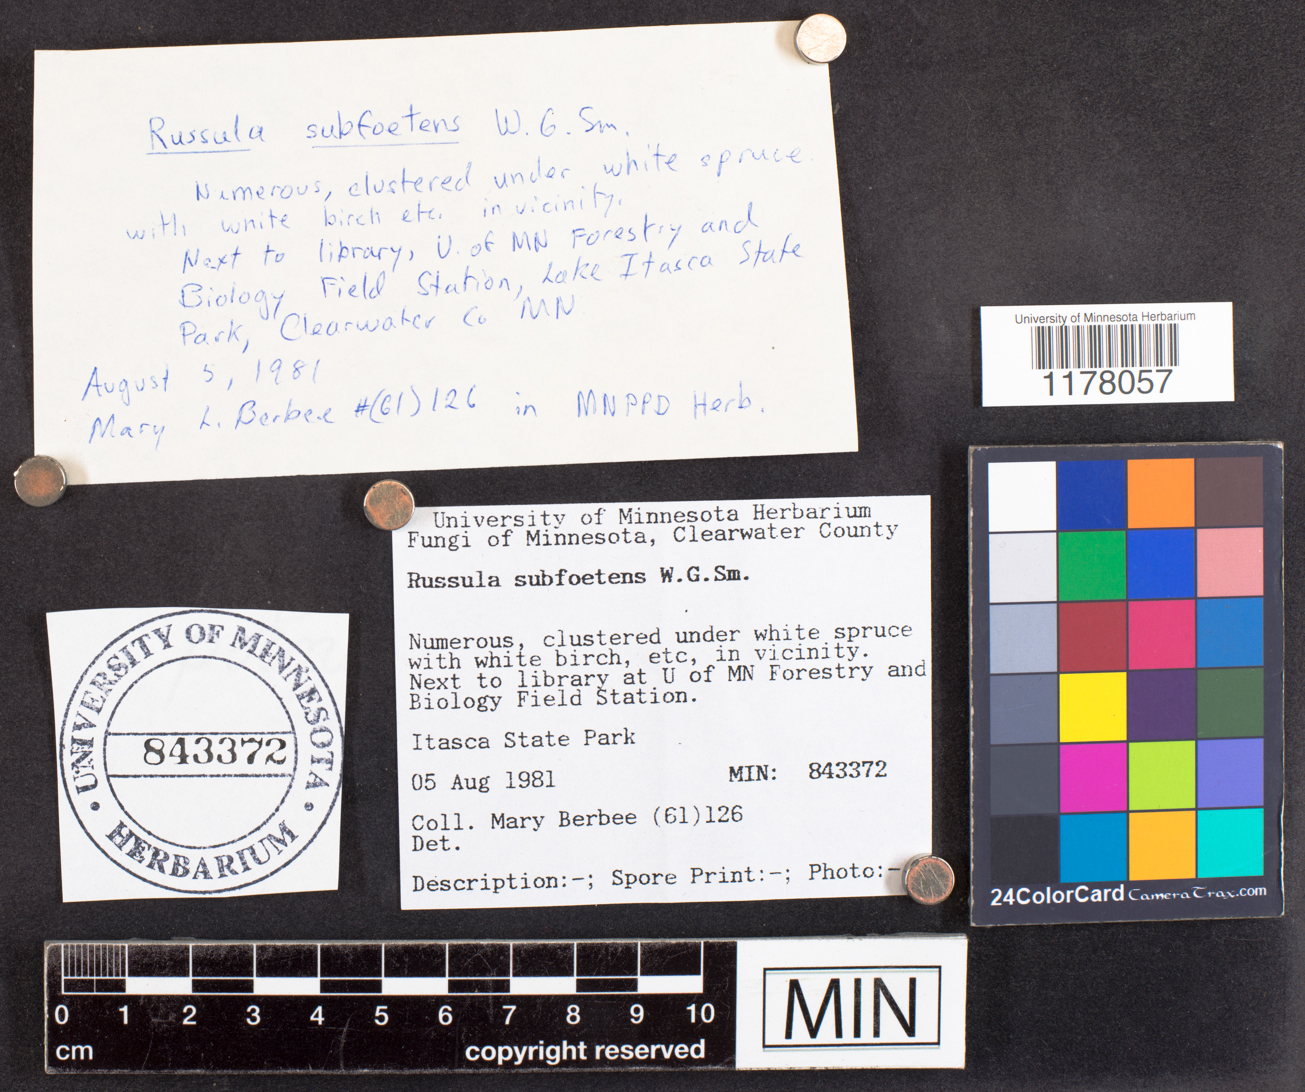 Russula subfoetens W. G. Sm.
Numerous, clustered under white spruce
with white birch etc. in vicinity.
Next to library, U. of MN Forestry and
Biology Field Station, Lake Itasca State
Park, Clearwater Co MN
August 5, 1981
Mary L. Berbee #(61)126 in MNPPD Herb.
University of Minnesota Herbarium
1178057
University of Minnesota Herbarium
Fungi of Minnesota, Clearwater County
Russula subfoetens W.G.Sm.
Numerous, clustered under white spruce
with white birch, etc, in vicinity.
Next to library at U of MN Forestry and
Biology Field Station.
Itasca State Park
05 Aug 1981 MIN: 843372
Coll. Mary Berbee (61)126
Det.
Description:-; Spore Print:-; Photo:-
UNIVERSITY OF MINNESOTA
843372
HERBARIUM
24ColorCard CameraTrax.com
0 1 2 3 4 5 6 7 8 9 10
cm copyright reserved
MIN